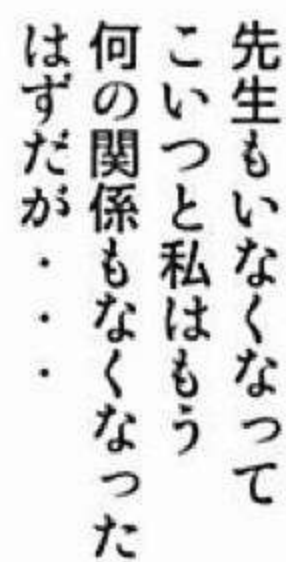 先生もいなくなって
こいつと私はもう
何の関係もなくなった
はずだが・・・